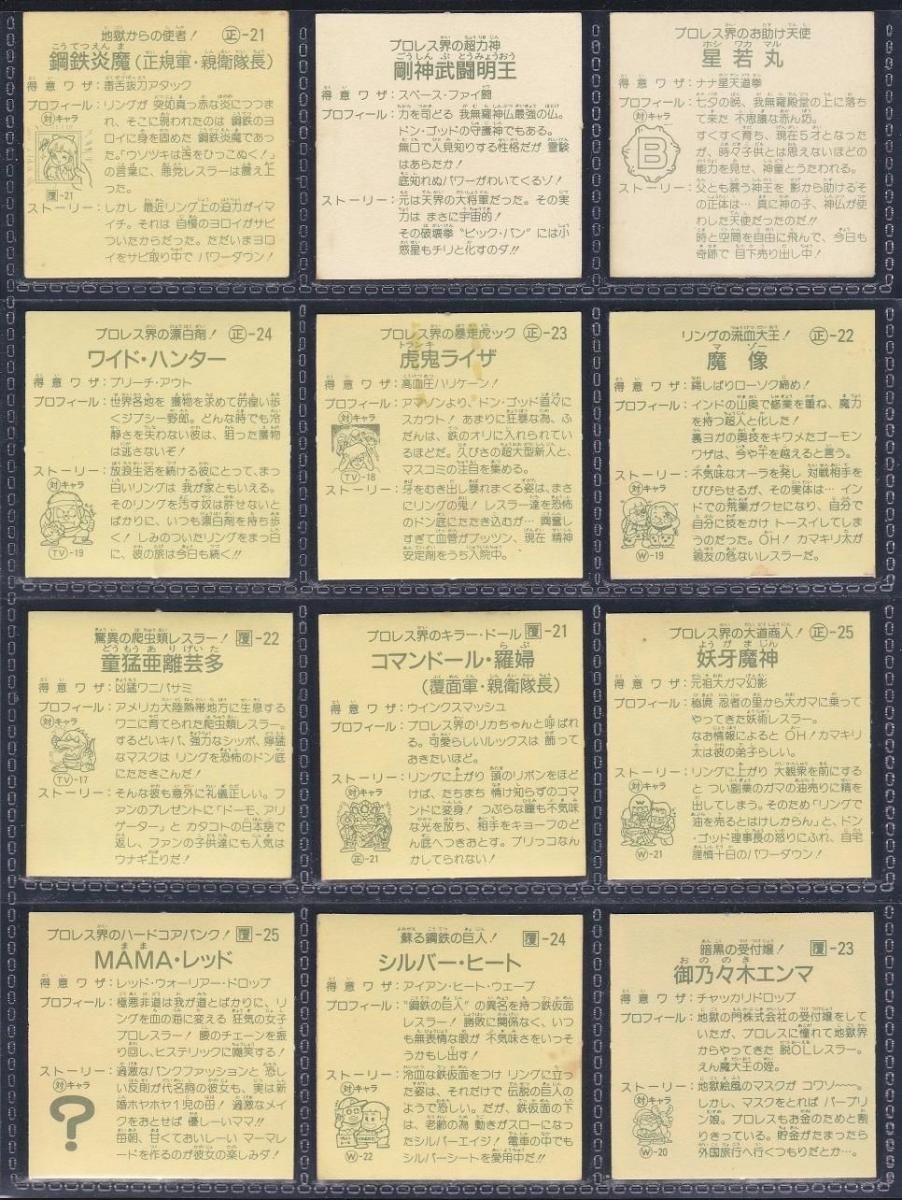 地獄からの使者! ㊣-21
こうてつえんま
鋼鉄炎魔(正規軍・親衛隊長)
得意ワザ:毒舌抜刀アタック
プロフィール:リングが 突如真っ赤な炎につつま
れ、そこに現われたのは 鋼鉄のヨ
ロイに身を固めた 鋼鉄炎魔であっ
た。「ウソツキは舌をひっこぬく!」
の言葉に、悪党レスラーは震え上
った。
対キャラ
覆-21
ストーリー:しかし 最近リング上の迫力がイマ
イチ。それは 自慢のヨロイがサビ
ついたからだった。ただいまヨロ
イをサビ取り中で パワーダウン!
プロレス界の超力神
ごうしんぶとうみょうおう
剛神武闘明王
得意ワザ:スペース・ファイ闘
プロフィール:力を司どる 我無羅神仏最強の仏。
ドン・ゴッドの守護神でもある。
無口で人見知りする性格だが 霊験
はあらたか!
底知れぬパワーがわいてくるゾ!
ストーリー:元は天界の大将軍だった。その実
力は まさに宇宙的!
その破壊拳 "ビック・バン"には小
惑星もチリと化すのダ!!
プロレス界のお助け天使
ホシ ワカ マル
星若丸
得意ワザ:ナナ星天道拳
プロフィール:七夕の晩、我無羅殿堂の上に落ち
て来た 不思議な赤ん坊。
すくすく育ち、現在5才となった
が、時々子供とは思えないほどの
能力を見せ、神童とうたわれる。
対キャラ
B
ストーリー:父とも慕う神王を 影から助けるそ
の正体は… 真に神の子、神仏が使
わした天使だったのだ!!
時と空間を自由に飛んで、今日も
奇跡で 目下売り出し中!
プロレス界の漂白剤! ㊣-24
ワイド・ハンター
得意ワザ:ブリーチ・アウト
プロフィール:世界各地を 獲物を求めて彷徨い歩
くジプシー野郎。どんな時でも冷
静さを失わない彼は、狙った獲物
は逃さないぞ!
ストーリー:放浪生活を続ける彼にとって、まっ
白いリングは 我が家ともいえる。
そのリングを汚す奴は許せないと
ばかりに、いつも漂白剤を持ち歩
く! しみのついたリングをまっ白
に、彼の旅は今日も続く!!
対キャラ
TV-19
プロレス界の暴走虎ック ㊣-23
トランキ
虎鬼ライザ
得意ワザ:高血圧ハリケーン!
プロフィール:アマゾンより、ドン・ゴッド直々に
スカウト! あまりに狂暴な為、ふ
だんは、鉄のオリに入れられてい
るほどだ。久びさの超大型新人と、
マスコミの注目を集める。
対キャラ
TV-18
ストーリー:牙をむき出し暴れまくる姿は、まさ
にリングの鬼! レスラー達を恐怖
のドン底にたたき込むが… 興奮し
すぎて血管がブッツン、現在 精神
安定剤をうち入院中。
リングの流血大王! ㊣-22
マゾー
魔像
得意ワザ:縄しばりローソク締め!
プロフィール:インドの山奥で修業を重ね、魔力
を持つ超人と化した!
裏ヨガの奥技をキワメたゴーモン
ワザは、今や千を越えると言う。
ストーリー:不気味なオーラを発し 対戦相手を
びびらせるが、その実体は… イン
ドでの荒業がクセになり、自分で
自分に技をかけ トースイしてしま
うのだった。OH! カマキリ太が
親友の危ないレスラーだ。
対キャラ
W-19
驚異の爬虫類レスラー! 覆-22
どうもうありげいた
童猛亜離芸多
得意ワザ:凶猛ワニバサミ
プロフィール:アメリカ大陸熱帯地方に生息する
ワニに育てられた爬虫類レスラー。
するどいキバ、強力なシッポ、獰猛
なマスクは リングを恐怖のドン底
にたたきこんだ!
対キャラ
TV-17
ストーリー:そんな彼も意外に礼儀正しい。フ
ァンのプレゼントに「ドーモ、アリ
ゲーター」と カタコトの日本語で
返し、ファンの子供達にも人気は
ウナギ上りだ!
プロレス界のキラー・ドール 覆-21
らぶ
コマンドール・羅婦
(覆面軍・親衛隊長)
得意ワザ:ウインクスマッシュ
プロフィール:プロレス界のリカちゃんと呼ばれ
る。可愛らしいルックスは 飾って
おきたいほど。
ストーリー:リングに上がり 頭のリボンをほど
けば、たちまち 情け知らずのコマ
ンドに変身! つぶらな瞳も不気味
な光を放ち、相手をキョーフのど
ん底へつきおとす。ブリッコなん
かしてられない!
対キャラ
㊣-21
プロレス界の大道商人! ㊣-25
ようがまじん
妖牙魔神
得意ワザ:元祖大ガマ幻影
プロフィール:極境 忍者の里から大ガマに乗って
やってきた妖術レスラー。
なお情報によると OH! カマキリ
太は彼の弟子らしい。
ストーリー:リングに上がり 大観衆を前にする
と つい副業のガマの油売りに精を
出してしまう。そのため「リングで
油を売るとはけしからん」と、ドン・
ゴッド理事長の怒りにふれ、自宅
謹慎十日のパワーダウン!
対キャラ
W-21
プロレス界のハードコアパンク! 覆-25
まま
MAMA・レッド
得意ワザ:レッド・ウォーリアー・ドロップ
プロフィール:極悪非道は我が道とばかりに、リ
ングを血の海に変える 狂気の女子
プロレスラー! 腰のチェーンを振
り回し、ヒステリックに嘲笑する!
ストーリー:過激なパンクファッションと 恐し
い反則が代名詞の彼女も、実は新
婚ホヤホヤ1児の母! 過激なメイ
クをおとせば 優しーいママ!!
毎朝、甘くておいしーい マーマレ
ードを作るのが彼女の楽しみダ!
対キャラ
?
蘇る鋼鉄の巨人! 覆-24
シルバー・ヒート
得意ワザ:アイアン・ヒート・ウェーブ
プロフィール:"鋼鉄の巨人"の異名を持つ鉄仮面
レスラー! 勝敗に関係なく、いつ
も無表情な顔が 不気味さをいっそ
うかもし出す!
ストーリー:冷血な鉄仮面をつけ リングに立つ
た姿は、それだけで 伝説の巨人の
ようで恐しい。だが、鉄仮面の下
は、老齢の為 動きがスローになっ
たシルバーエイジ! 電車の中でも
シルバーシートを愛用中だ!!
対キャラ
W-22
暗黒の受付嬢! 覆-23
おののき
御乃々木エンマ
得意ワザ:チャッカリドロップ
プロフィール:地獄の門株式会社の受付嬢をして
いたが、プロレスに憧れて地獄界
からやってきた 脱OLレスラー。
えん魔大王の姪。
ストーリー:地獄絵風のマスクが コワソ〜〜。
しかし、マスクをとれば パープリ
ン娘。プロレスもお金のためと割
りきっている。貯金がたまったら
外国旅行へ行くつもりだとか…。
対キャラ
W-20